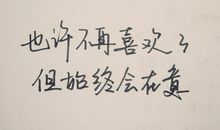 也许不再喜欢了
但始终会在意